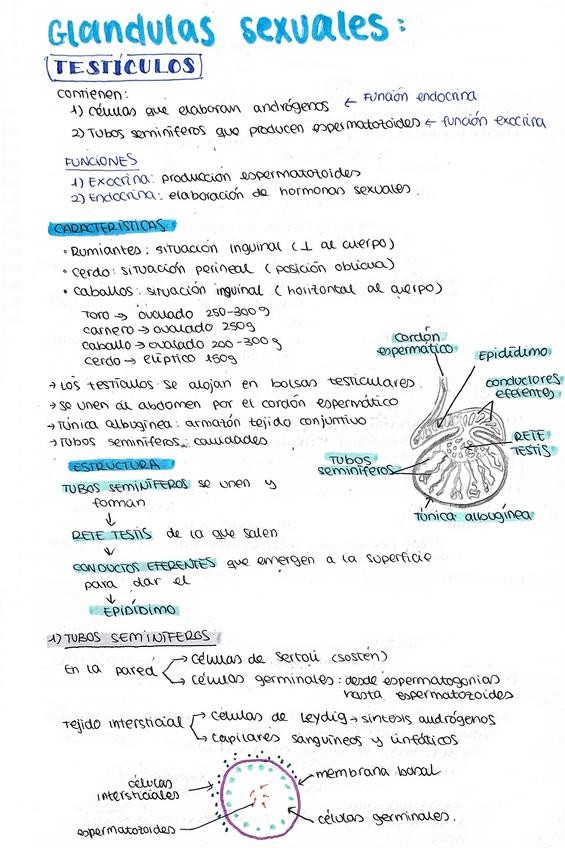 Glandulas sexuales:
TESTÍCULOS
contienen:
1) células que elaboran andrógenos ← Función endocrina
2) Tubos seminíferos que producen espermatozoides ← función exocrina
FUNCIONES
1) Exocrina: producción espermatozoides
2) Endocrina: elaboración de hormonas sexuales.
CARACTERÍSTICAS
• Rumiantes: situación inguinal (⊥ al cuerpo)
• Cerdo: situación perineal (posición oblicua)
• Caballos: situación inguinal (horizontal al cuerpo)
Toro → ovalado 250-300g
carnero → ovalado 250g
caballo → ovalado 200-300g
cerdo → elíptico 150g
→ Los testículos se alojan en bolsas testiculares.
→ Se unen al abdomen por el cordón espermático
→ Túnica albugínea: armazón tejido conjuntivo
→ Tubos seminíferos: cavidades
Cordón
espermático
Epidídimo
conductores
eferentes
RETE
TESTIS
Tubos
seminíferos
Túnica albugínea
ESTRUCTURA
TUBOS SEMINÍFEROS se unen y
forman
↓
RETE TESTIS de la que salen
↓
CONDUCTOS EFERENTES que emergen a la superficie
para dar el
↓
EPIDÍDIMO
1) TUBOS SEMINÍFEROS
En la pared → células de Sertoli (sostén)
→ células germinales: desde espermatogonias
hasta espermatozoides
Tejido intersticial → células de Leydig → síntesis andrógenos
→ capilares sanguíneos y linfáticos
células
intersticiales
membrana basal
espermatozoides
células germinales.